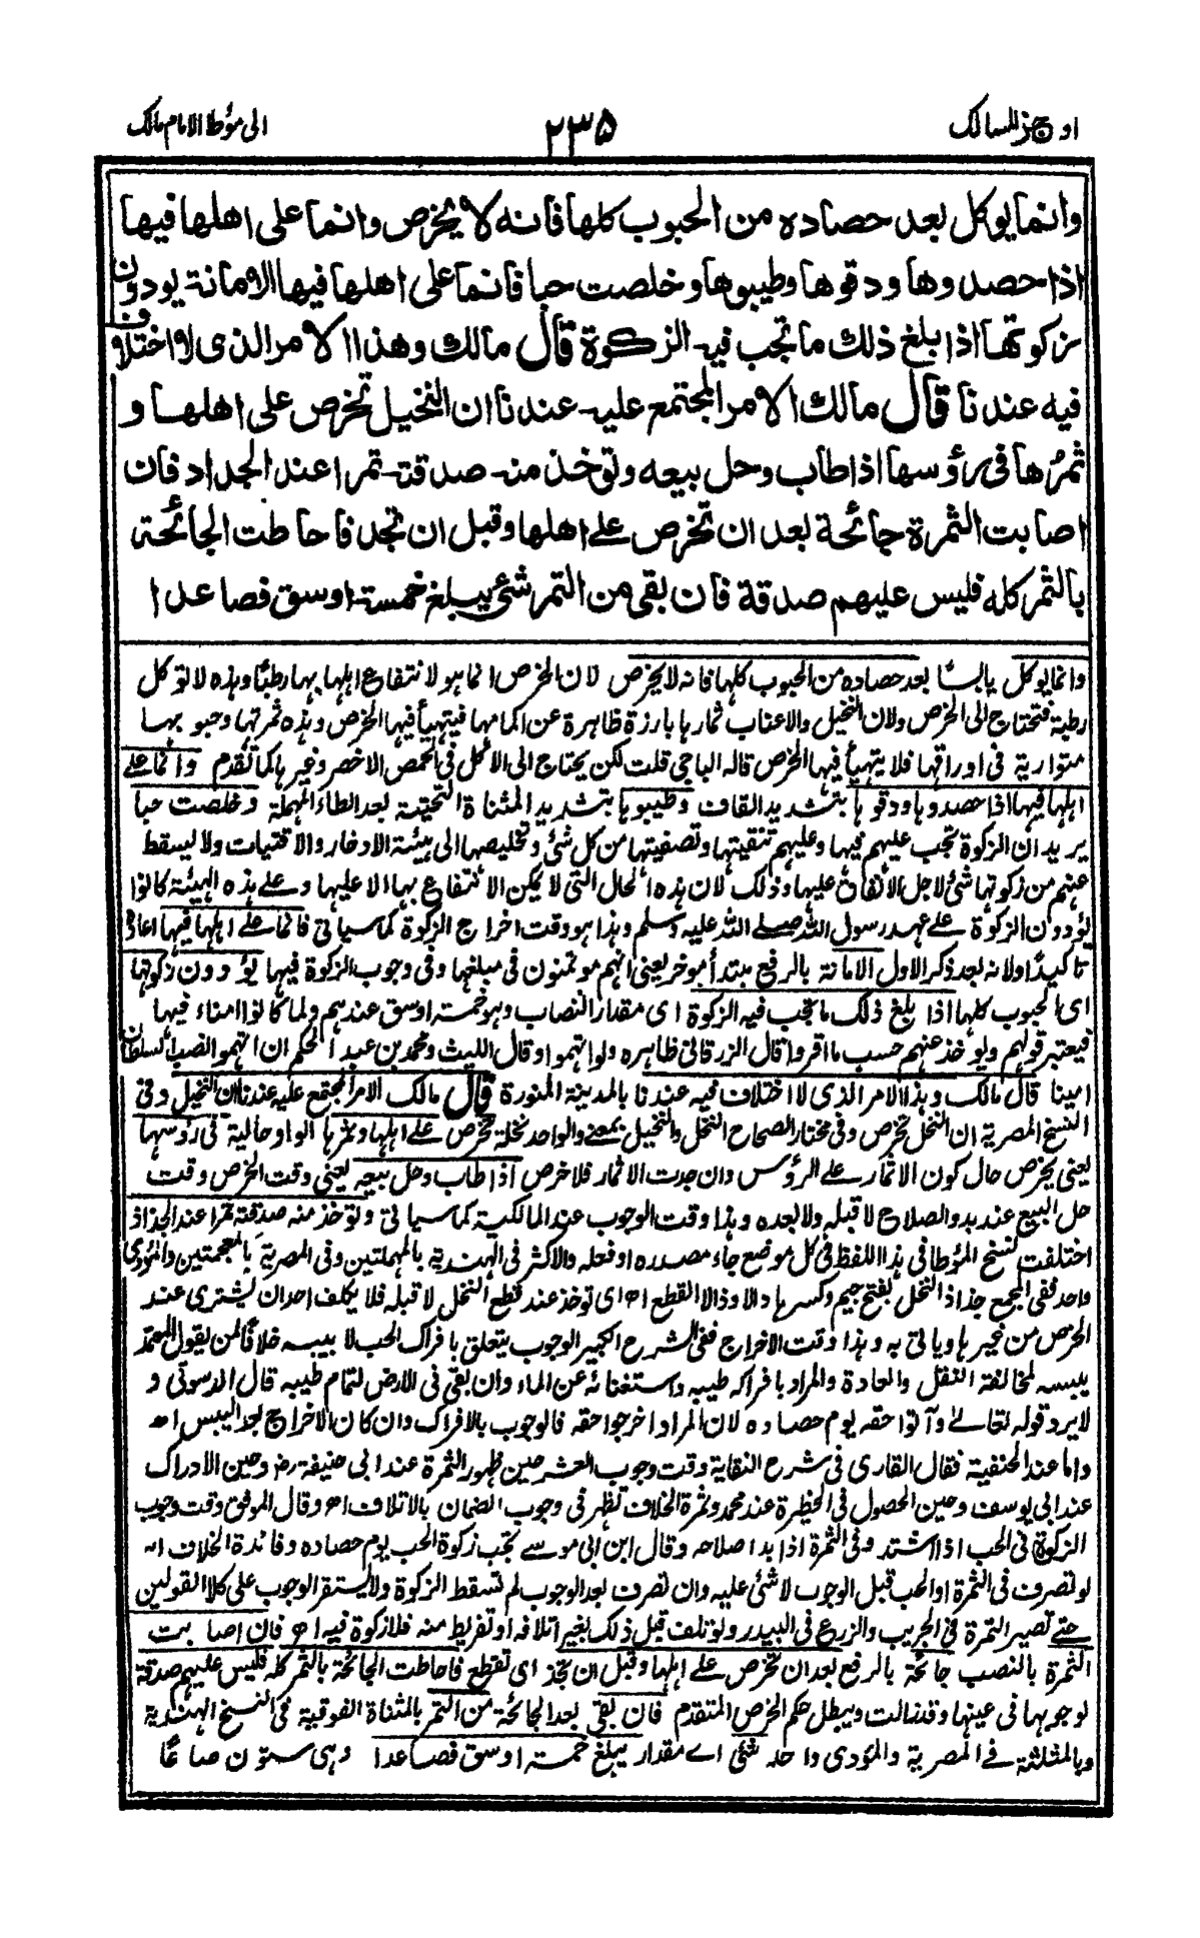 اوجز المسالك
٢٣٥
الى مؤطا الامام مالك
وانما يوكل بعد حصاده من الحبوب كلها فانه لا يخرص وانما على اهلها فيها
اذا حصدوها ودقوها وطيبوها وخلصت حبا فانما على اهلها فيها الامانة يودون
زكوتها اذا بلغ ذلك ما تجب فيه الزكوة قال مالك وهذا الامر الذى لا اختلاف
فيه عندنا قال مالك الامر المجتمع عليه عندنا ان النخيل تخرص على اهلها و
ثمرها فى رؤسها اذا طاب وحل بيعه وتوخذ منه صدقته تمرا عند الجداد فان
اصابت الثمرة جائحة بعد ان تخرص على اهلها وقبل ان تجد فاحاطت الجائحة
بالثمر كله فليس عليهم صدقة فان بقى من التمر شئ يبلغ خمسة اوسق فصاعدا
وانما يوكل يابسًا بعد حصاده من الحبوب كلها فانه لا يخرص لان الخرص انما هو لانتفاع اهلها بها رطبًا وهذه لا توكل
رطبة فتحتاج الى الخرص ولان النخيل والاعناب ثمارها بارزة ظاهرة عن اكمامها فيتهيأ فيها الخرص وهذه ثمرتها وحبوبها
متوارية فى اوراقها فلا يتهيأ فيها الخرص قاله الباجى قلت لكن يحتاج الى الاكل فى الحمص الاخضر وغيرها كما تقدم وانما على
اهلها فيها اذا حصدوها ودقوها بتشديد القاف وطيبوها بتشديد المثناة التحتية بعد الطاء المهملة وخلصت حبا
يريد ان الزكوة تجب عليهم فيها وعليهم تنقيتها وتصفيتها من كل شئ وتخليصها الى هيئة الادخار والاقتيات ولا يسقط
عنهم من زكوتها شئ لاجل الانفاق عليها وذلك لان هذه الحال التى لا يمكن الانتفاع بها الا عليها وعلى هذه الهيئة كانوا
يؤدون الزكوة على عهد رسول الله صلى الله عليه وسلم وهذا هو وقت اخراج الزكوة كما سياتى فانما على اهلها فيها اعاده
تاكيدا ولانه بعد ذكر الاول الامانة بالرفع مبتدأ موخر يعنى انهم موتمنون فى مبلغها وفى وجوب الزكوة فيها يؤدون زكوتها
اى الحبوب كلها اذا بلغ ذلك ما تجب فيه الزكوة اى مقدار النصاب وهو خمسة اوسق عندهم ولما كانوا امناء فيها
فيعتبر قولهم ويوخذ عنهم حسب ما اقروا قال الزرقانى ظاهره ولو اتهموا وقال الليث ومحمد بن عبد الحكم ان اتهموا نصب السلطان
امينا قال مالك وهذا الامر الذى لا اختلاف فيه عندنا بالمدينة المنورة قال مالك الامر المجتمع عليه عندنا ان النخيل وفى
النسخ المصرية ان النخل تخرص وفى مختار الصحاح النخل والنخيل بمعنى والواحد نخلة تخرص على اهلها وثمرها الواو حالية فى رؤسها
يعنى يخرص حال كون الاثمار على الرؤس وان جدت الاثمار فلا خرص اذا طاب وحل بيعه يعنى وقت الخرص وقت
حل البيع عند بدو الصلاح لا قبله ولا بعده وهذا وقت الوجوب عند المالكية كما سياتى وتوخذ منه صدقته تمرا عند الجذاذ
اختلفت نسخ المؤطا فى هذا اللفظ فى كل موضع جاء مصدره او فعله والاكثر فى الهندية بالمهملتين وفى المصرية بالمعجمتين والمؤدى
واحد ففى المجمع جذاذ النخل بفتح جيم وكسرها دالا وذالا القطع اھ اى توخذ عند قطع النخل لا قبله فلا يكلف احد ان يشترى عند
الخرص من غيرها وياتى به وهذا وقت الاخراج ففى الشرح الكبير الوجوب يتعلق بافراك الحب لا بيبسه خلافا لمن يقول المعتمد
بيبسه لمخالفة النقل والعادة والمراد بافراكه طيبه واستغنائه عن الماء وان بقى فى الارض لتمام طيبه قال الدسوقى و
لا يرد قوله تعالى وآتوا حقه يوم حصاده لان المراد اخرجوا حقه فالوجوب بالافراك وان كان الاخراج بعد اليبس اھ
واما عند الحنفية فقال القارى فى شرح النقاية وقت وجوب العشر حين ظهور الثمرة عند ابى حنيفة رض وحين الادراك
عند ابى يوسف وحين الحصول فى الحظيرة عند محمد وثمرة الخلاف تظهر فى وجوب الضمان بالاتلاف اھ وقال الموفق وقت وجوب
الزكوة فى الحب اذا اشتد وفى الثمرة اذا بدا صلاحه وقال ابن ابى موسى تجب زكوة الحب يوم حصاده وفائدة الخلاف انه
لو تصرف فى الثمرة او الحب قبل الوجوب لا شئ عليه وان تصرف بعد الوجوب لم تسقط الزكوة ولا يستقر الوجوب على كلا القولين
حتى تصير الثمرة فى الجريب والزرع فى البيدر ولو تلف قبل ذلك بغير اتلافه او تفريط منه فلا زكوة فيه اھ فان اصابت
الثمرة بالنصب جائحة بالرفع بعد ان تخرص على اهلها وقبل ان تجذ اى تقطع فاحاطت الجائحة بالثمر كله فليس عليهم صدقة
لوجوبها فى عينها وقد زالت ويبطل حكم الخرص المتقدم فان بقى بعد الجائحة من التمر بالمثناة الفوقية فى النسخ الهندية
وبالمثلثة فى المصرية والمؤدى واحد شئ اى مقدار يبلغ خمسة اوسق فصاعدا وهى ستون صاعًا